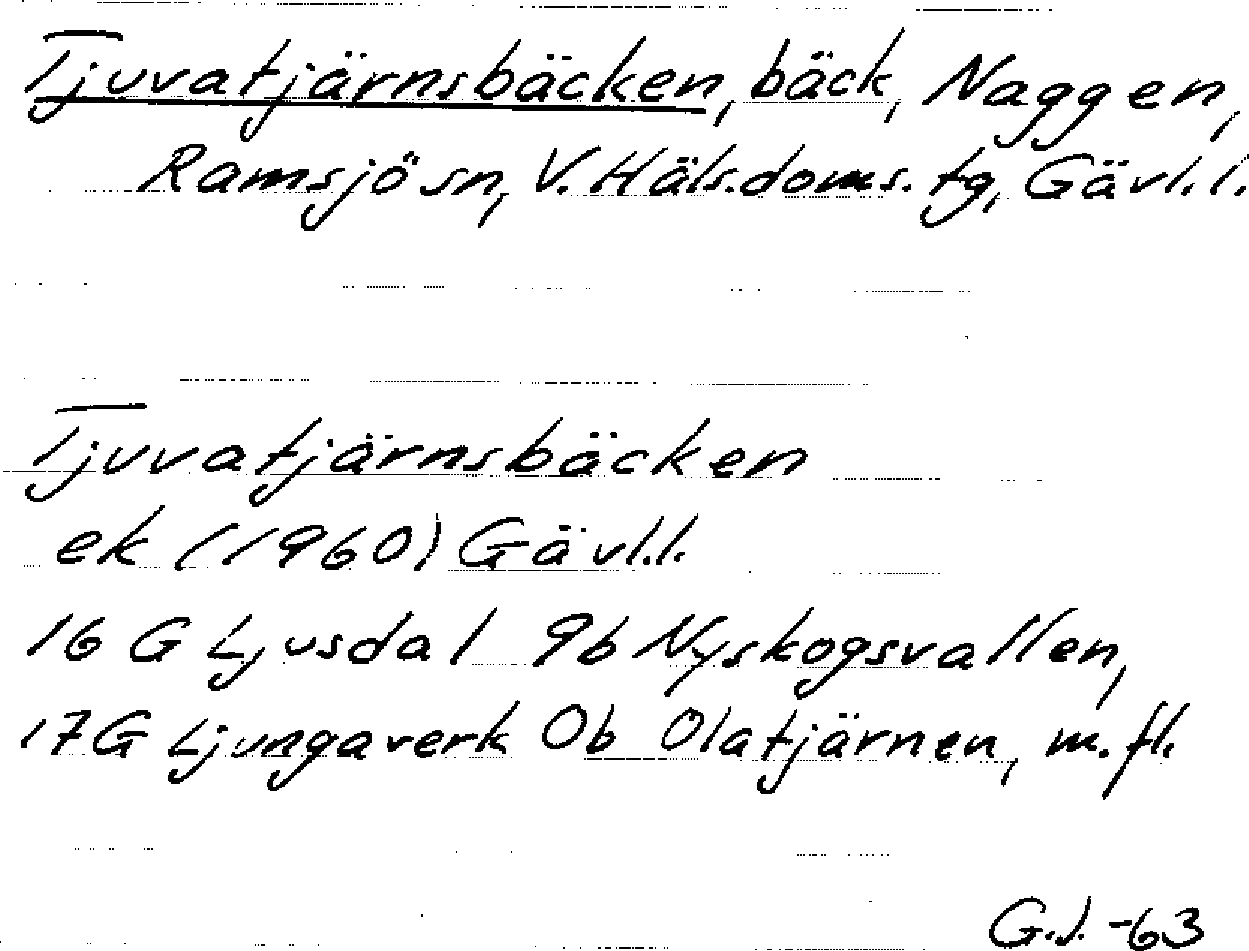 Tjuvatjärnsbäcken, bäck, Naggen,
Ramsjö sn, V. Häls. doms. tg, Gävl. l.
Tjuvatjärnsbäcken
ek (1960) Gävl.l.
16 G Ljusdal 9b Nyskogsvallen,
17G Ljungaverk 0b Olatjärnen, m.fl.
G.J. -63